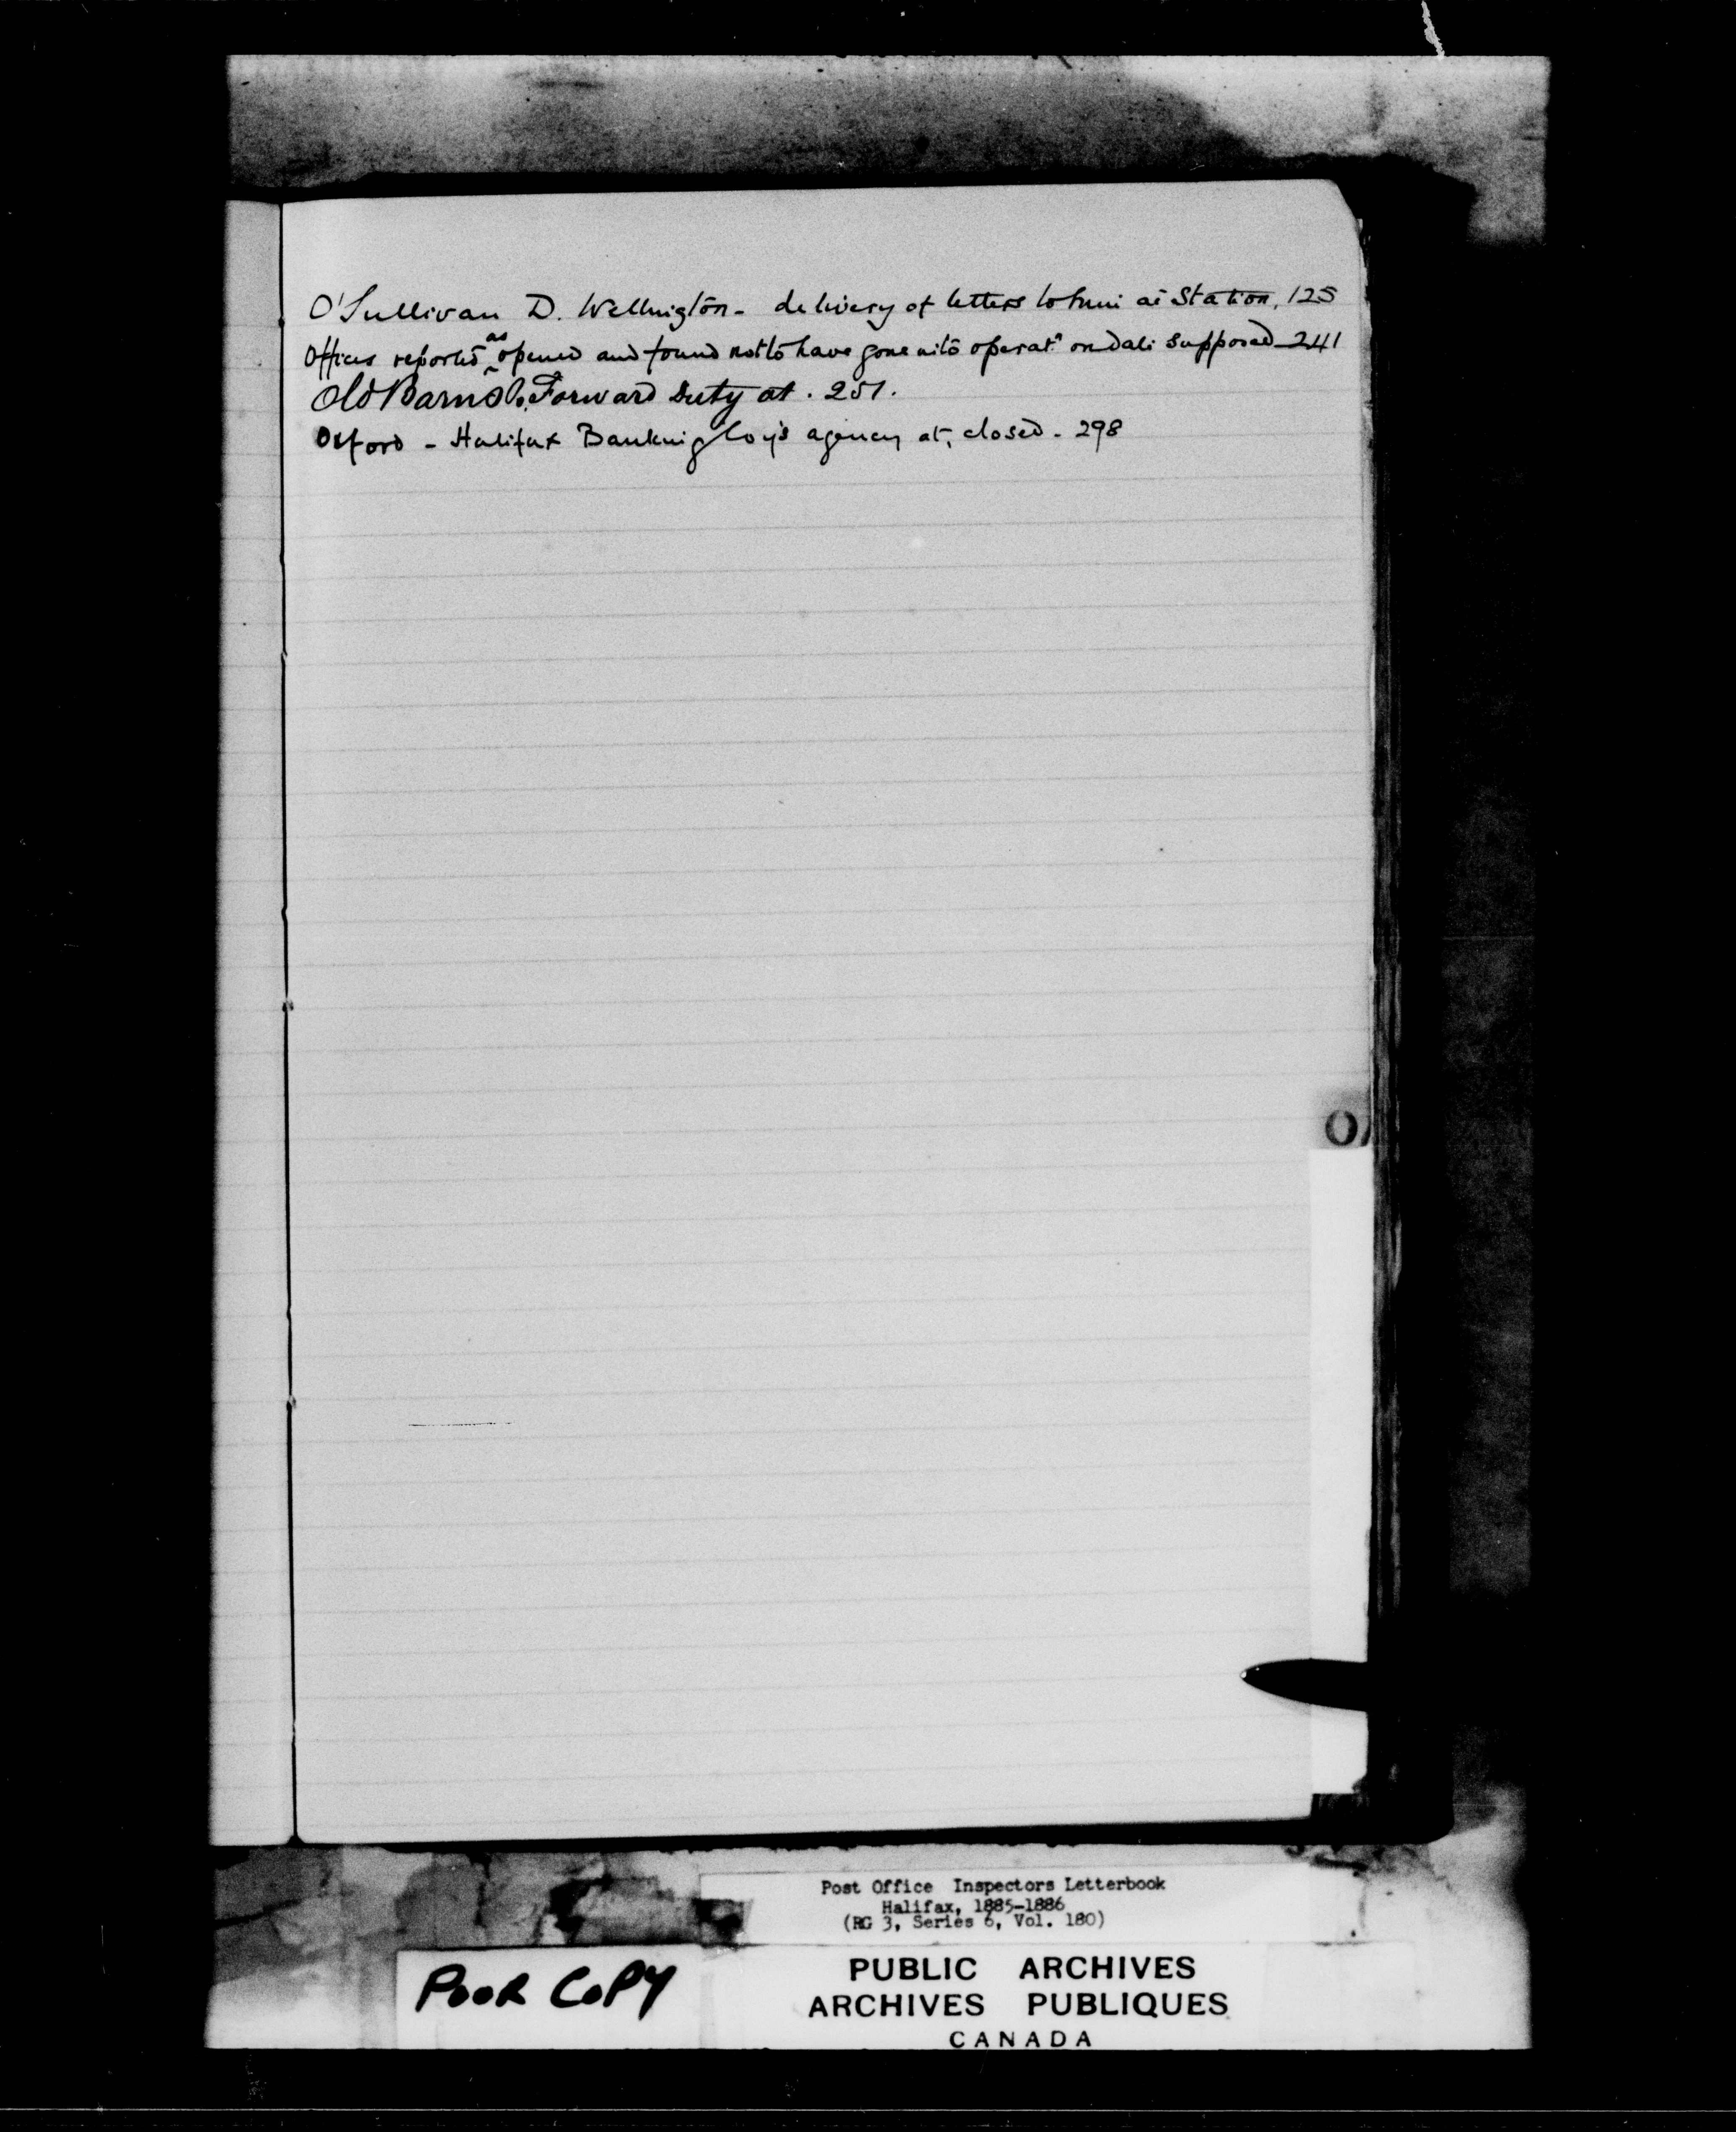 O'Sullivan D. Wellington - delivery of letters to him at Station, 125
Offices reported as opened and found not to have gone into operatn on date supposed 241
Old Barns Forward Duty at . 251.
Oxford - Halifax Banking Coy's agency at, closed - 298
O
Post Office Inspectors Letterbook
Halifax, 1885-1886
(RG 3, Series 6, Vol. 180)
POOR COPY
PUBLIC ARCHIVES
ARCHIVES PUBLIQUES
CANADA